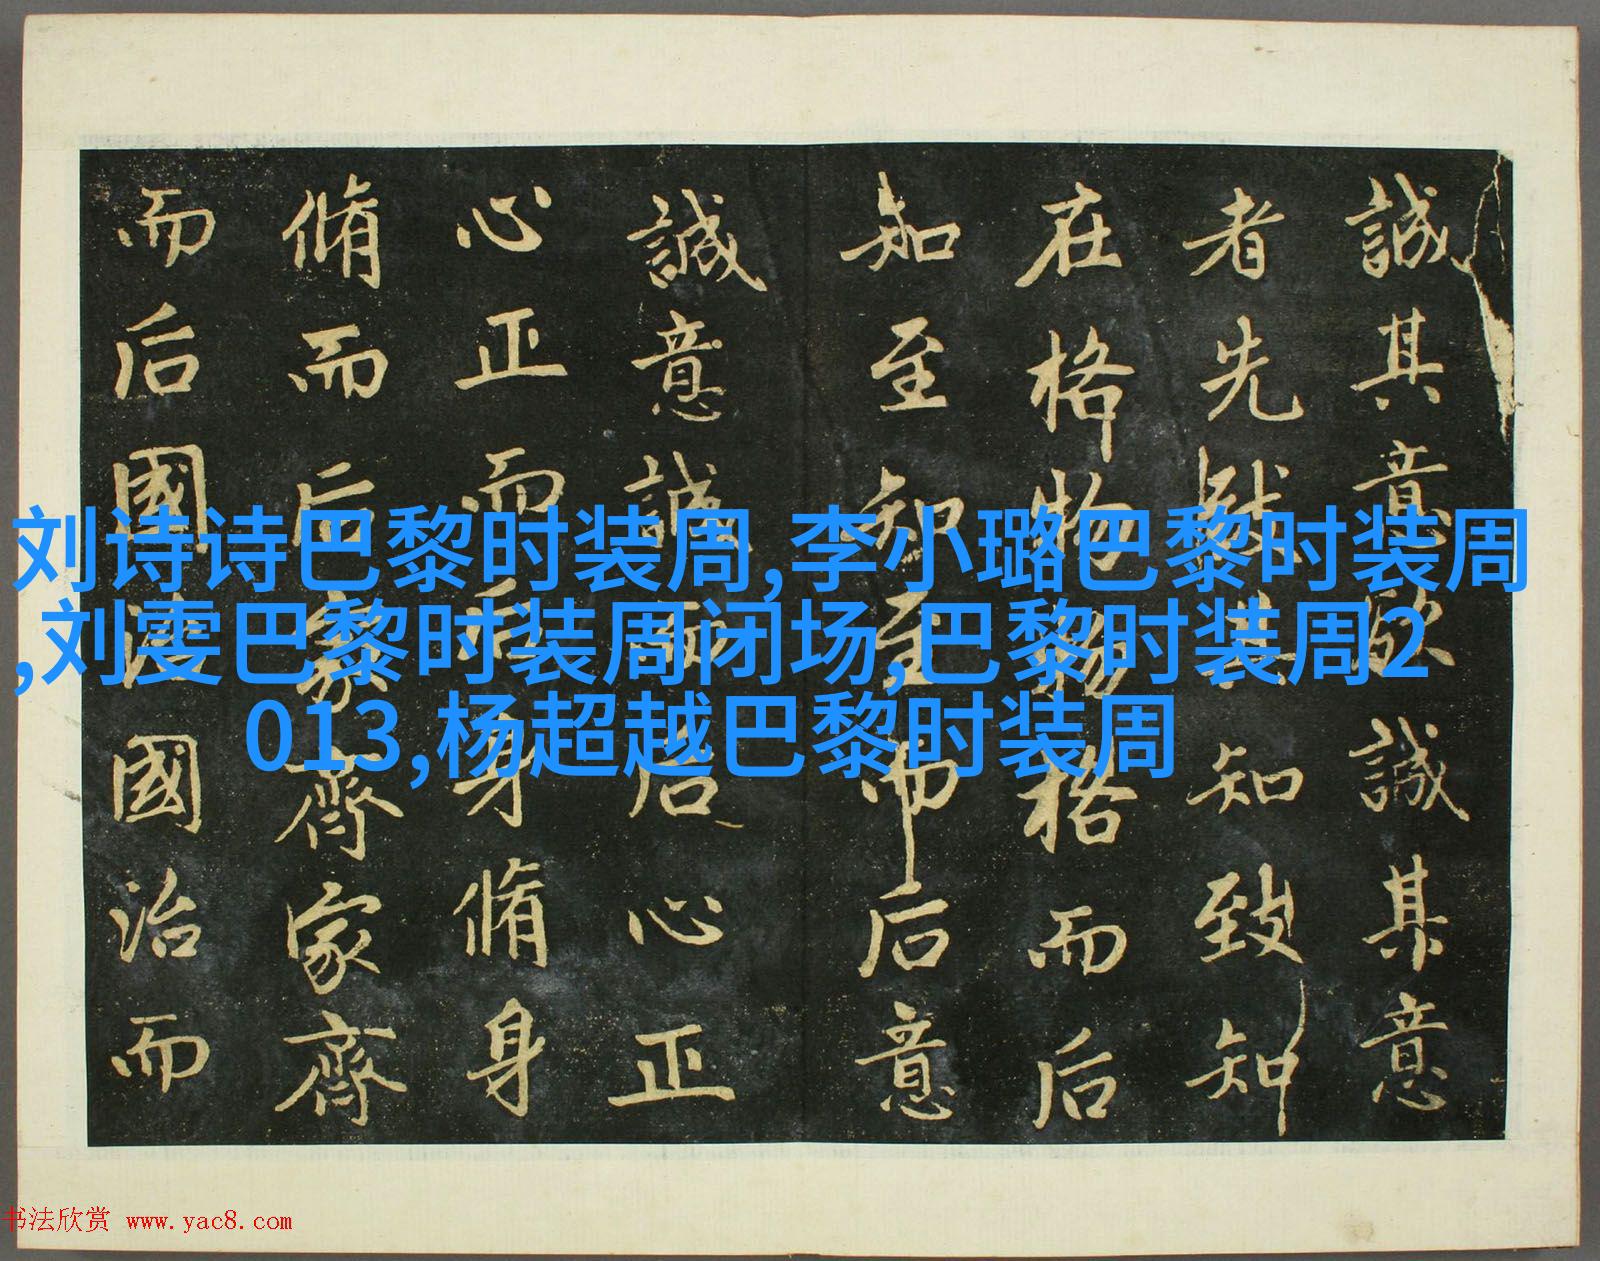 誠其意欲誠其意
者先其知致知
在格物物格而后
知至知至而后意
誠意誠而后心正
心正而后身脩身
脩而后家齊家齊
而后國治國治而
刘诗诗巴黎时装周,李小璐巴黎时装周
,刘雯巴黎时装周闭场,巴黎时装周2
013,杨超越巴黎时装周
书法欣赏 www.yac8.com